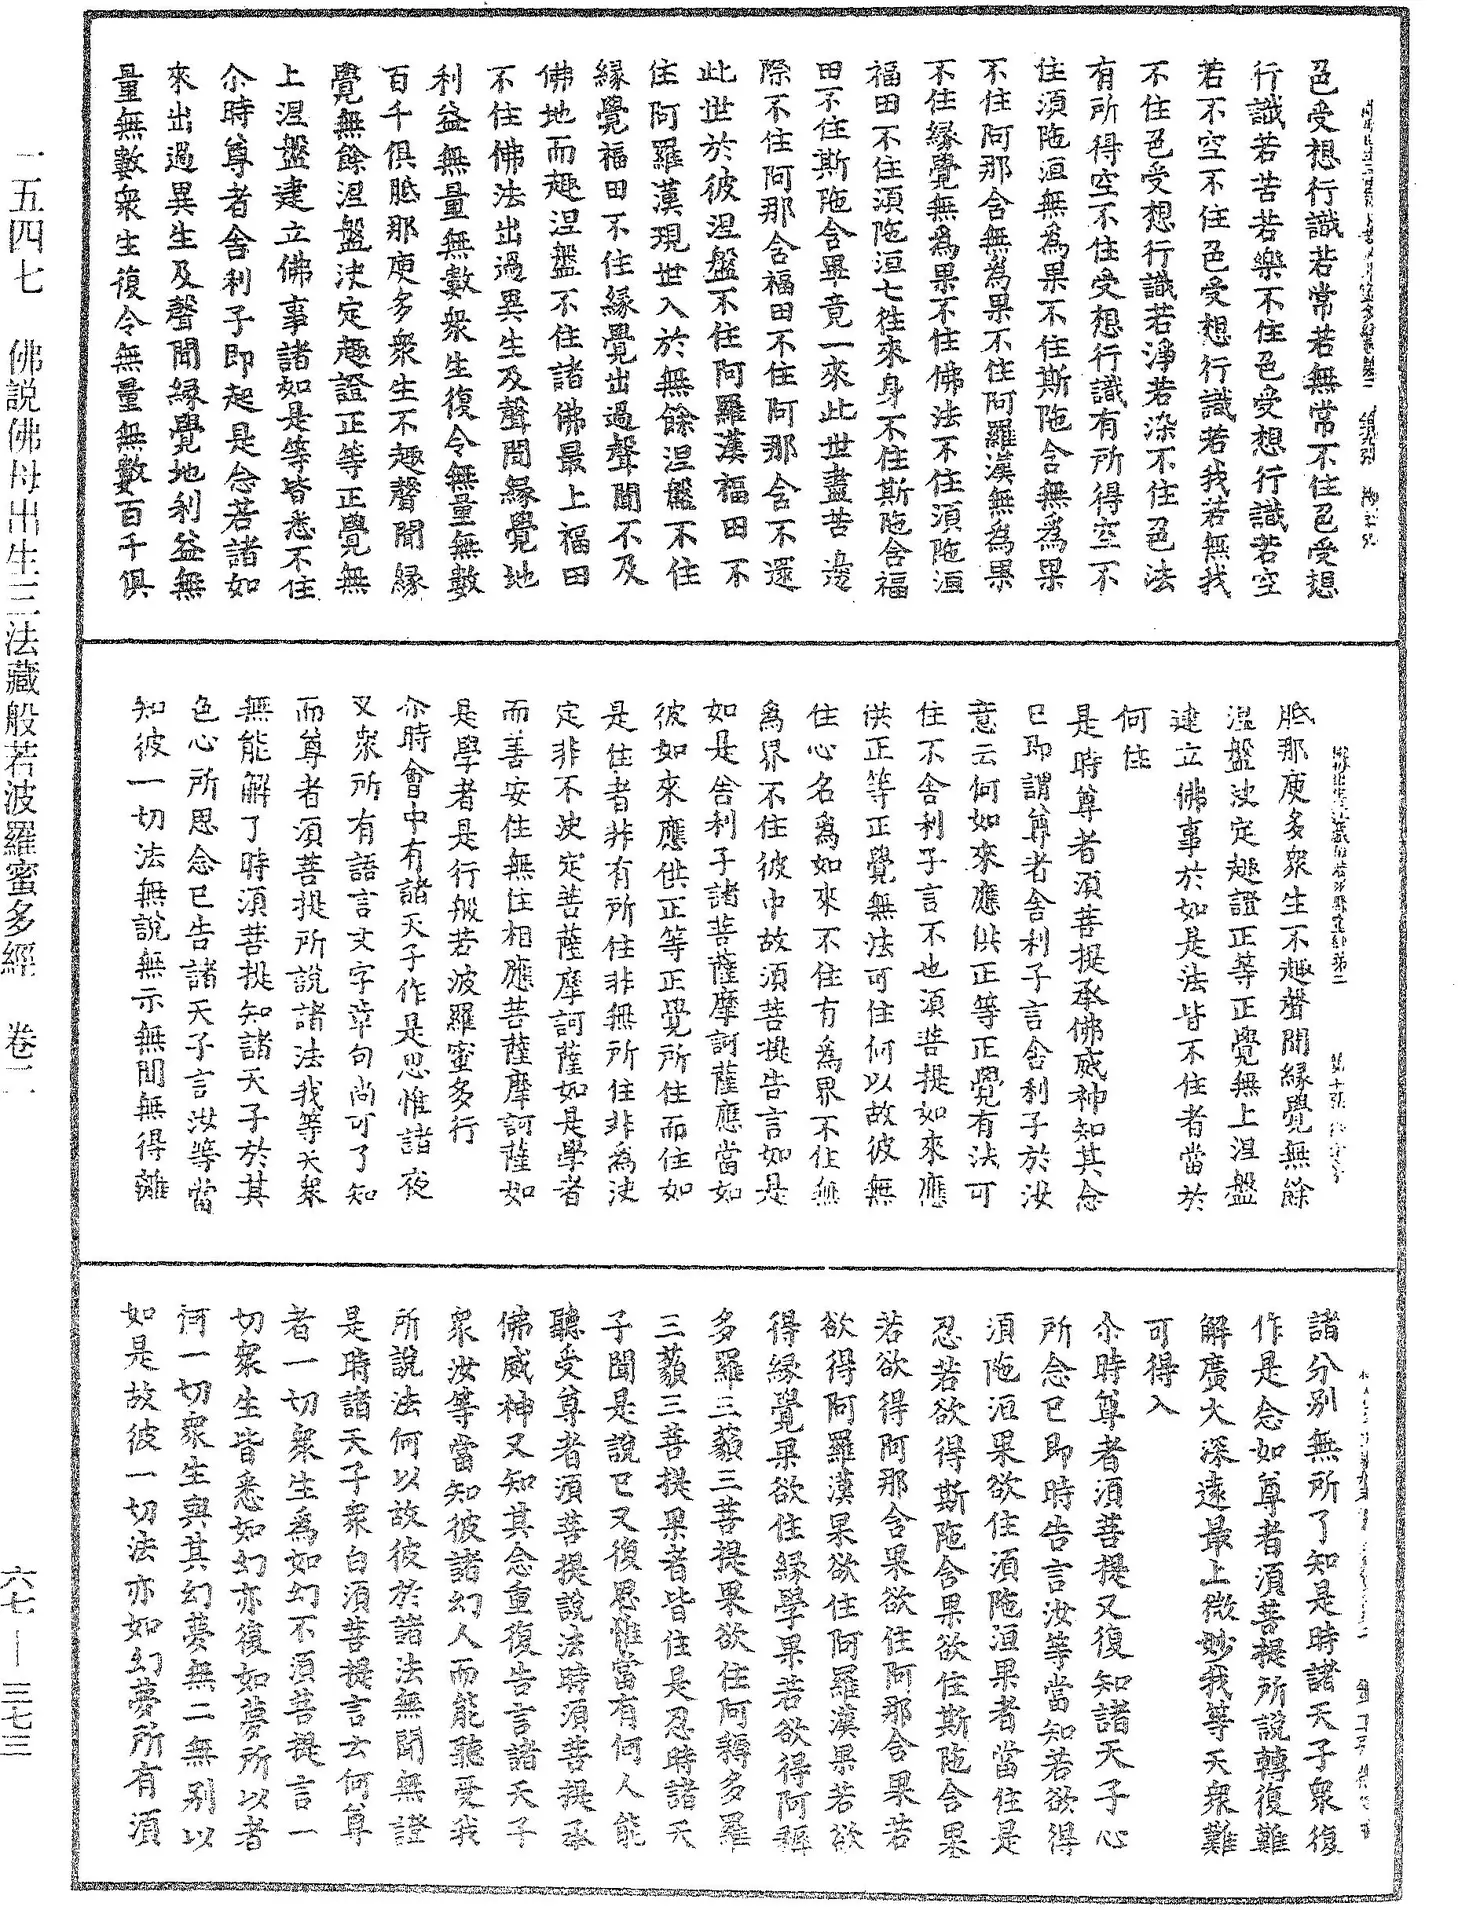 色受想行識若常若無常不住色受想
行識若苦若樂不住色受想行識若空
若不空不住色受想行識若我若無我
不住色受想行識若淨若染不住色法
有所得空不住受想行識有所得空不
住須陁洹無為果不住斯陁含無為果
不住阿那含無為果不住阿羅漢無為果
不住緣覺無為果不住佛法不住須陁洹
福田不住須陁洹七往來身不住斯陁含福
田不住斯陁含畢竟一來此世盡苦邊
際不住阿那含福田不住阿那含不還
此世於彼涅盤不住阿羅漢福田不
住阿羅漢現世入於無餘涅盤不住
緣覺福田不住緣覺出過聲聞不及
佛地而趣涅盤不住諸佛最上福田
不住佛法出過異生及聲聞緣覺地
利益無量無數衆生復令無量無數
百千俱胝那庾多衆生不趣聲聞緣
覺無餘涅盤決定趣證正等正覺無
上涅盤建立佛事諸如是等皆悉不住
尒時尊者舍利子即起是念若諸如
來出過異生及聲聞緣覺地利益無
量無數衆生復令無量無數百千俱
胝那庾多衆生不趣聲聞緣覺無餘
涅盤決定趣證正等正覺無上涅盤
建立佛事於如是法皆不住者當於
何住
是時尊者須菩提承佛威神知其念
已即謂尊者舍利子言舍利子於汝
意云何如來應供正等正覺有法可
住不舍利子言不也須菩提如來應
供正等正覺無法可住何以故彼無
住心名為如來不住有為界不住無
為界不住彼中故須菩提告言如是
如是舍利子諸菩薩摩訶薩應當如
彼如來應供正等正覺所住而住如
是住者非有所住非無所住非為決
定非不決定菩薩摩訶薩如是學者
而善安住無住相應菩薩摩訶薩如
是學者是行般若波羅蜜多行
尒時會中有諸天子作是思惟諸夜
叉衆所有語言文字章句尚可了知
而尊者須菩提所說諸法我等天衆
無能解了時須菩提知諸天子於其
色心所思念已告諸天子言汝等當
知彼一切法無說無示無聞無得離
諸分別無所了知是時諸天子衆復
作是念如尊者須菩提所說轉復難
解廣大深遠最上微妙我等天衆難
可得入
尒時尊者須菩提又復知諸天子心
所念已即時告言汝等當知若欲得
須陁洹果欲住須陁洹果者當住是
忍若欲得斯陁含果欲住斯陁含果
若欲得阿那含果欲住阿那含果若
欲得阿羅漢果欲住阿羅漢果若欲
得緣覺果欲住緣學果若欲得阿耨
多羅三藐三菩提果欲住阿耨多羅
三藐三菩提果者皆住是忍時諸天
子聞是說已又復思惟當有何人能
聽受尊者須菩提說法時須菩提承
佛威神又知其念重復告言諸天子
衆汝等當知彼諸幻人而能聽受我
所說法何以故彼於諸法無聞無證
是時諸天子衆白須菩提言云何尊
者一切衆生為如幻不須菩提言一
切衆生皆悉如幻亦復如夢所以者
何一切衆生與其幻夢無二無別以
如是故彼一切法亦如幻夢所有須
一五四七　佛説佛母出生三法藏般若波羅蜜多經　卷二
六七—三七三